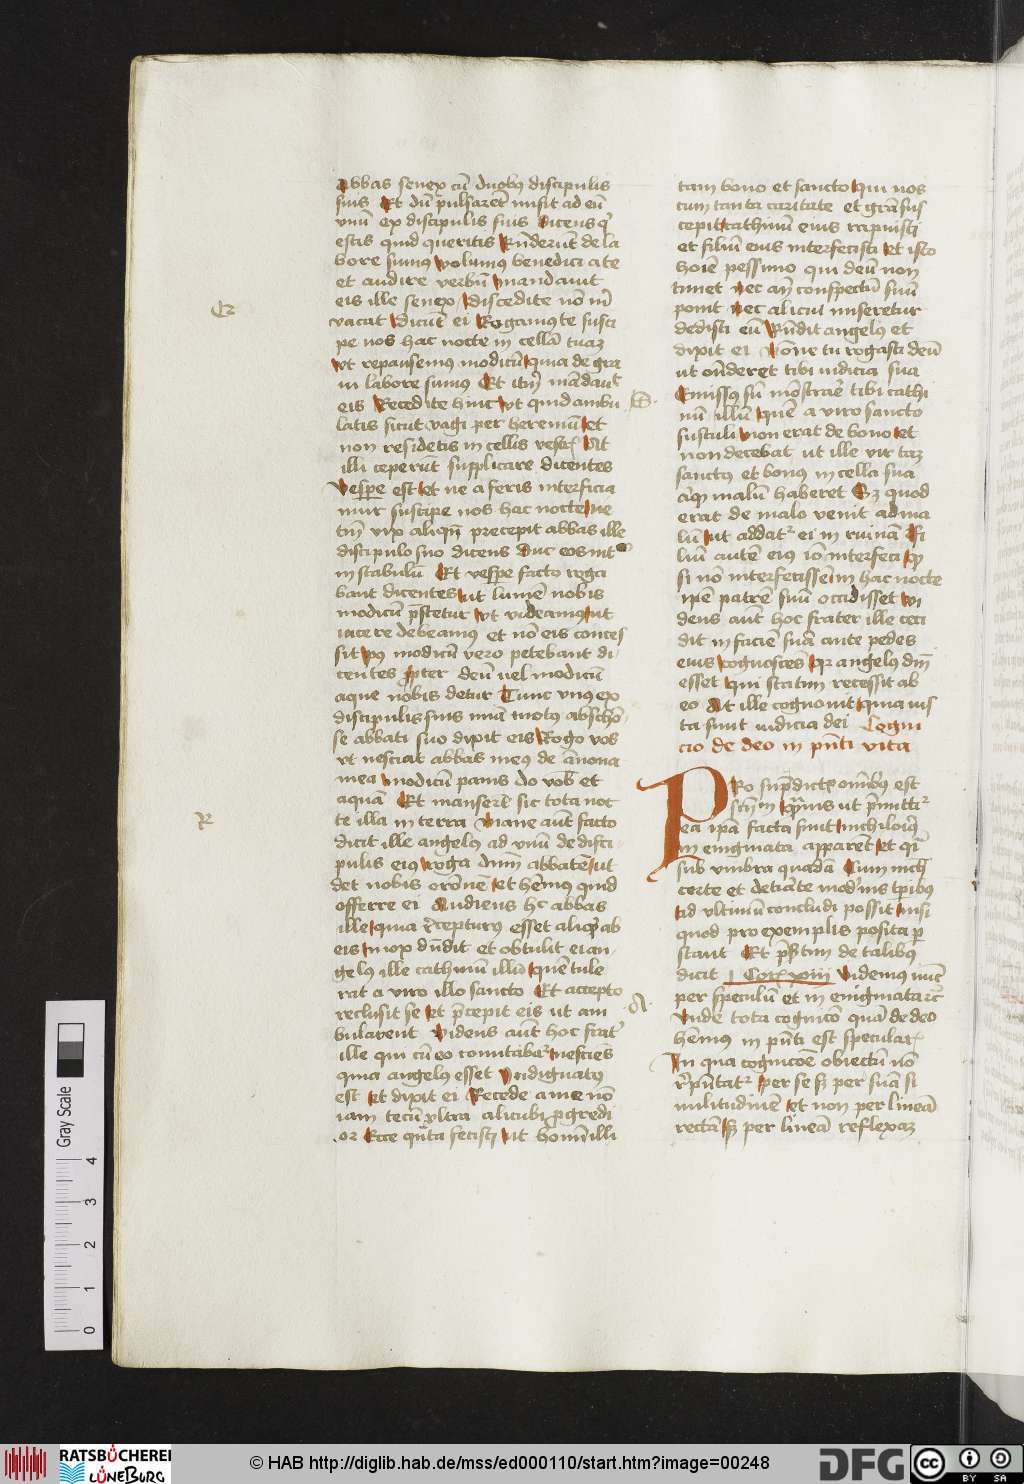 Abbas senex cū duobus discipulis
suis Et dū pulsaret misit ad eū
vnū ex discipulis suis dicens q̄
estis quid queritis Rn̄derūt de la
bore sumus volumus benedici a te
et audire verbū mandauit
eis ille senex discedite nō m̄
vacat dicūt ei Rogamus te susci
pe nos hac nocte in cellā tuā
vt repausemus modicū quia de gra
ui labore sumus Et itm̄ mādauit
eis Recedite hinc vt quid ambu
latis sicut vagi per heremū et
non residetis in cellis vestris At
illi ceperūt supplicare dicentes
Vespe est et ne a feris interficia
mur suscipe nos hac nocte ue
tm̄ vix aliqn̄ precepit abbas ille
discipulo suo dicens duc eos int
in stabulū Et vespe facto roga
bant dicentes ut lumē nobis
modicū p̄stetur vt videamus ut
iacere debeamus et nō eis conces
sit pos modicū vero petebant di
centes ꝓpter deū uel modicū
aque nobis detur Tunc vnus ex
discipulis suis mīa motus abscōn
se abbati suo dixit eis Rogo vos
vt nesciat abbas meus de ānona
mea modicū panis do vob et
aquā Et manserūt sic tota noc
te illa in terra Mane aūt facto
dicit ille angelus ad vnū de disci
pulis eius roga dnm̄ abbatē ut
det nobis orōnē et hēmus quid
offerre ei Audiens hc abbas
ille quia rcepturus esset aliqd ab
eis mox dn̄dit et obtulit ei an
gelus ille cathinū illū quē tule
rat a viro illo sancto Et accepto
reclusit se et p̄cepit eis ut am
bularent Videns aūt hoc frater
ille qui cū eo comitabatur nesciēs
quia angelus esset Indignatus
est et dixit ei Recede a me nō
iam tecū vltra alicubi ꝓgredi
or Ecce quāta fecisti vt homī illi
tam bono et sancto qui nos
cum tanta caritate et grā sus
cepit cathinū eius rapuisti
et filiū eius interfecisti et isto
hoīe pessimo qui deū non
timet nec an̄ conspectū suū
ponit nec alicui miseretur
dedisti eū Rn̄dit angelus et
dixit ei Nōne tu rogasti deū
ut on̄deret tibi iudicia sua
Emissus sū mōstrare tibi cathi
nū illū quē a viro sancto
sustuli non erat de bono et
non decebat ut ille vir tam
sanctus et bonus in cella sua
aliqd malū haberet Sz quod
erat de malo venit ad ma
lū ut addatur ei in ruinā Fi
liū autē eius iō interfeci qz
si nō interfecissem in hac nocte
ipē patrē suū occidisset vi
dens aūt hoc frater ille ceci
dit in faciē suā ante pedes
eius cognoscēs qz angelus dnī
esset qui statim recessit ab
eo At ille cognouit quia ius
ta sunt iudicia dei Cogni
cio de deo in pn̄ti vita
PRo sup̄dictis omībus est
sciendū in quamis ut p̄mittit
ea ipā facta sunt nichilomin9
in enigmata apparēt et qi
sub vmbra quadā Cum nich
certe et detiāte modernis tp̄ibus
ad vltimū concludi possit nisi
quod pro exemplis posita per
stant Et p̄sertim de talibus
dicit I Cor xiii Videmus nūc
per speculū et in enigmata rc
Vnde tota cognicō quā de deo
hēmus in pn̄ti est specularis
In qua cognicōe obiectū nō
rp̄ntatur per se sz per suā si
militudinē et non per lineā
rectā sz per lineā reflexā
Er
B
R
A
Gray Scale
4
3
2
1
0
RATSBÜCHEREI
LÜNEBURG
© HAB http://diglib.hab.de/mss/ed000110/start.htm?image=00248
DFG
cc BY SA